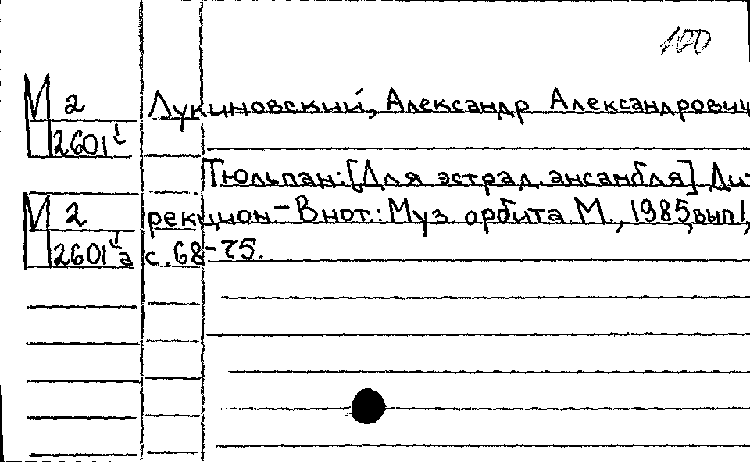 100
М 2 Лукиновский, Александр Александрович
2601
Тюльпан: [Для эстрад. ансамбля] Ди-
М 2 рекцион - В нот.: Муз. орбита М., 1985, вып 1,
2601 а с. 68-75.